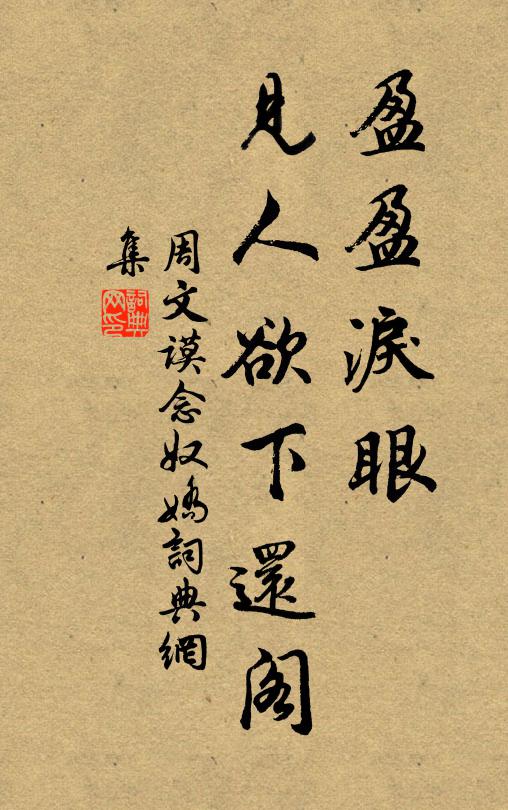 盈盈淚眼
見人欲下還閣
周文謨念奴嬌詞典網
集
詞典
网印